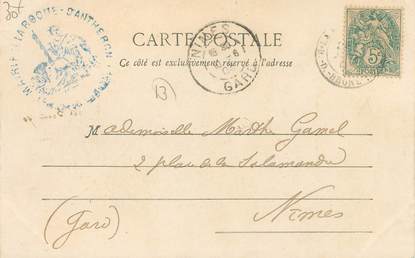 30f
MAIRIE LA ROQUE-D'ANTHERON
CARTE POSTALE
Ce côté est exclusivement réservé à l'adresse
NIMES
GARE
5
13
Mademoiselle Marthe Gamel
2 place de la Salamandre
Nîmes
(Gard)